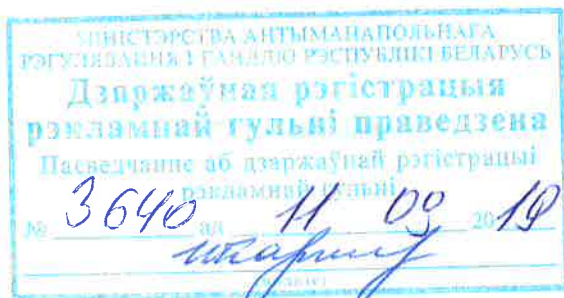 МІНІСТЭРСТВА АНТЫМАНАПОЛЬНАГА
РЭГУЛЯВАННЯ І ГАНДЛЮ РЭСПУБЛІКІ БЕЛАРУСЬ
Дзяржаўная рэгістрацыя
рэкламнай гульні праведзена
Пасведчанне аб дзяржаўнай рэгістрацыі
рэкламнай гульні
№ 3640 ад 11 09 2019
(подпіс)